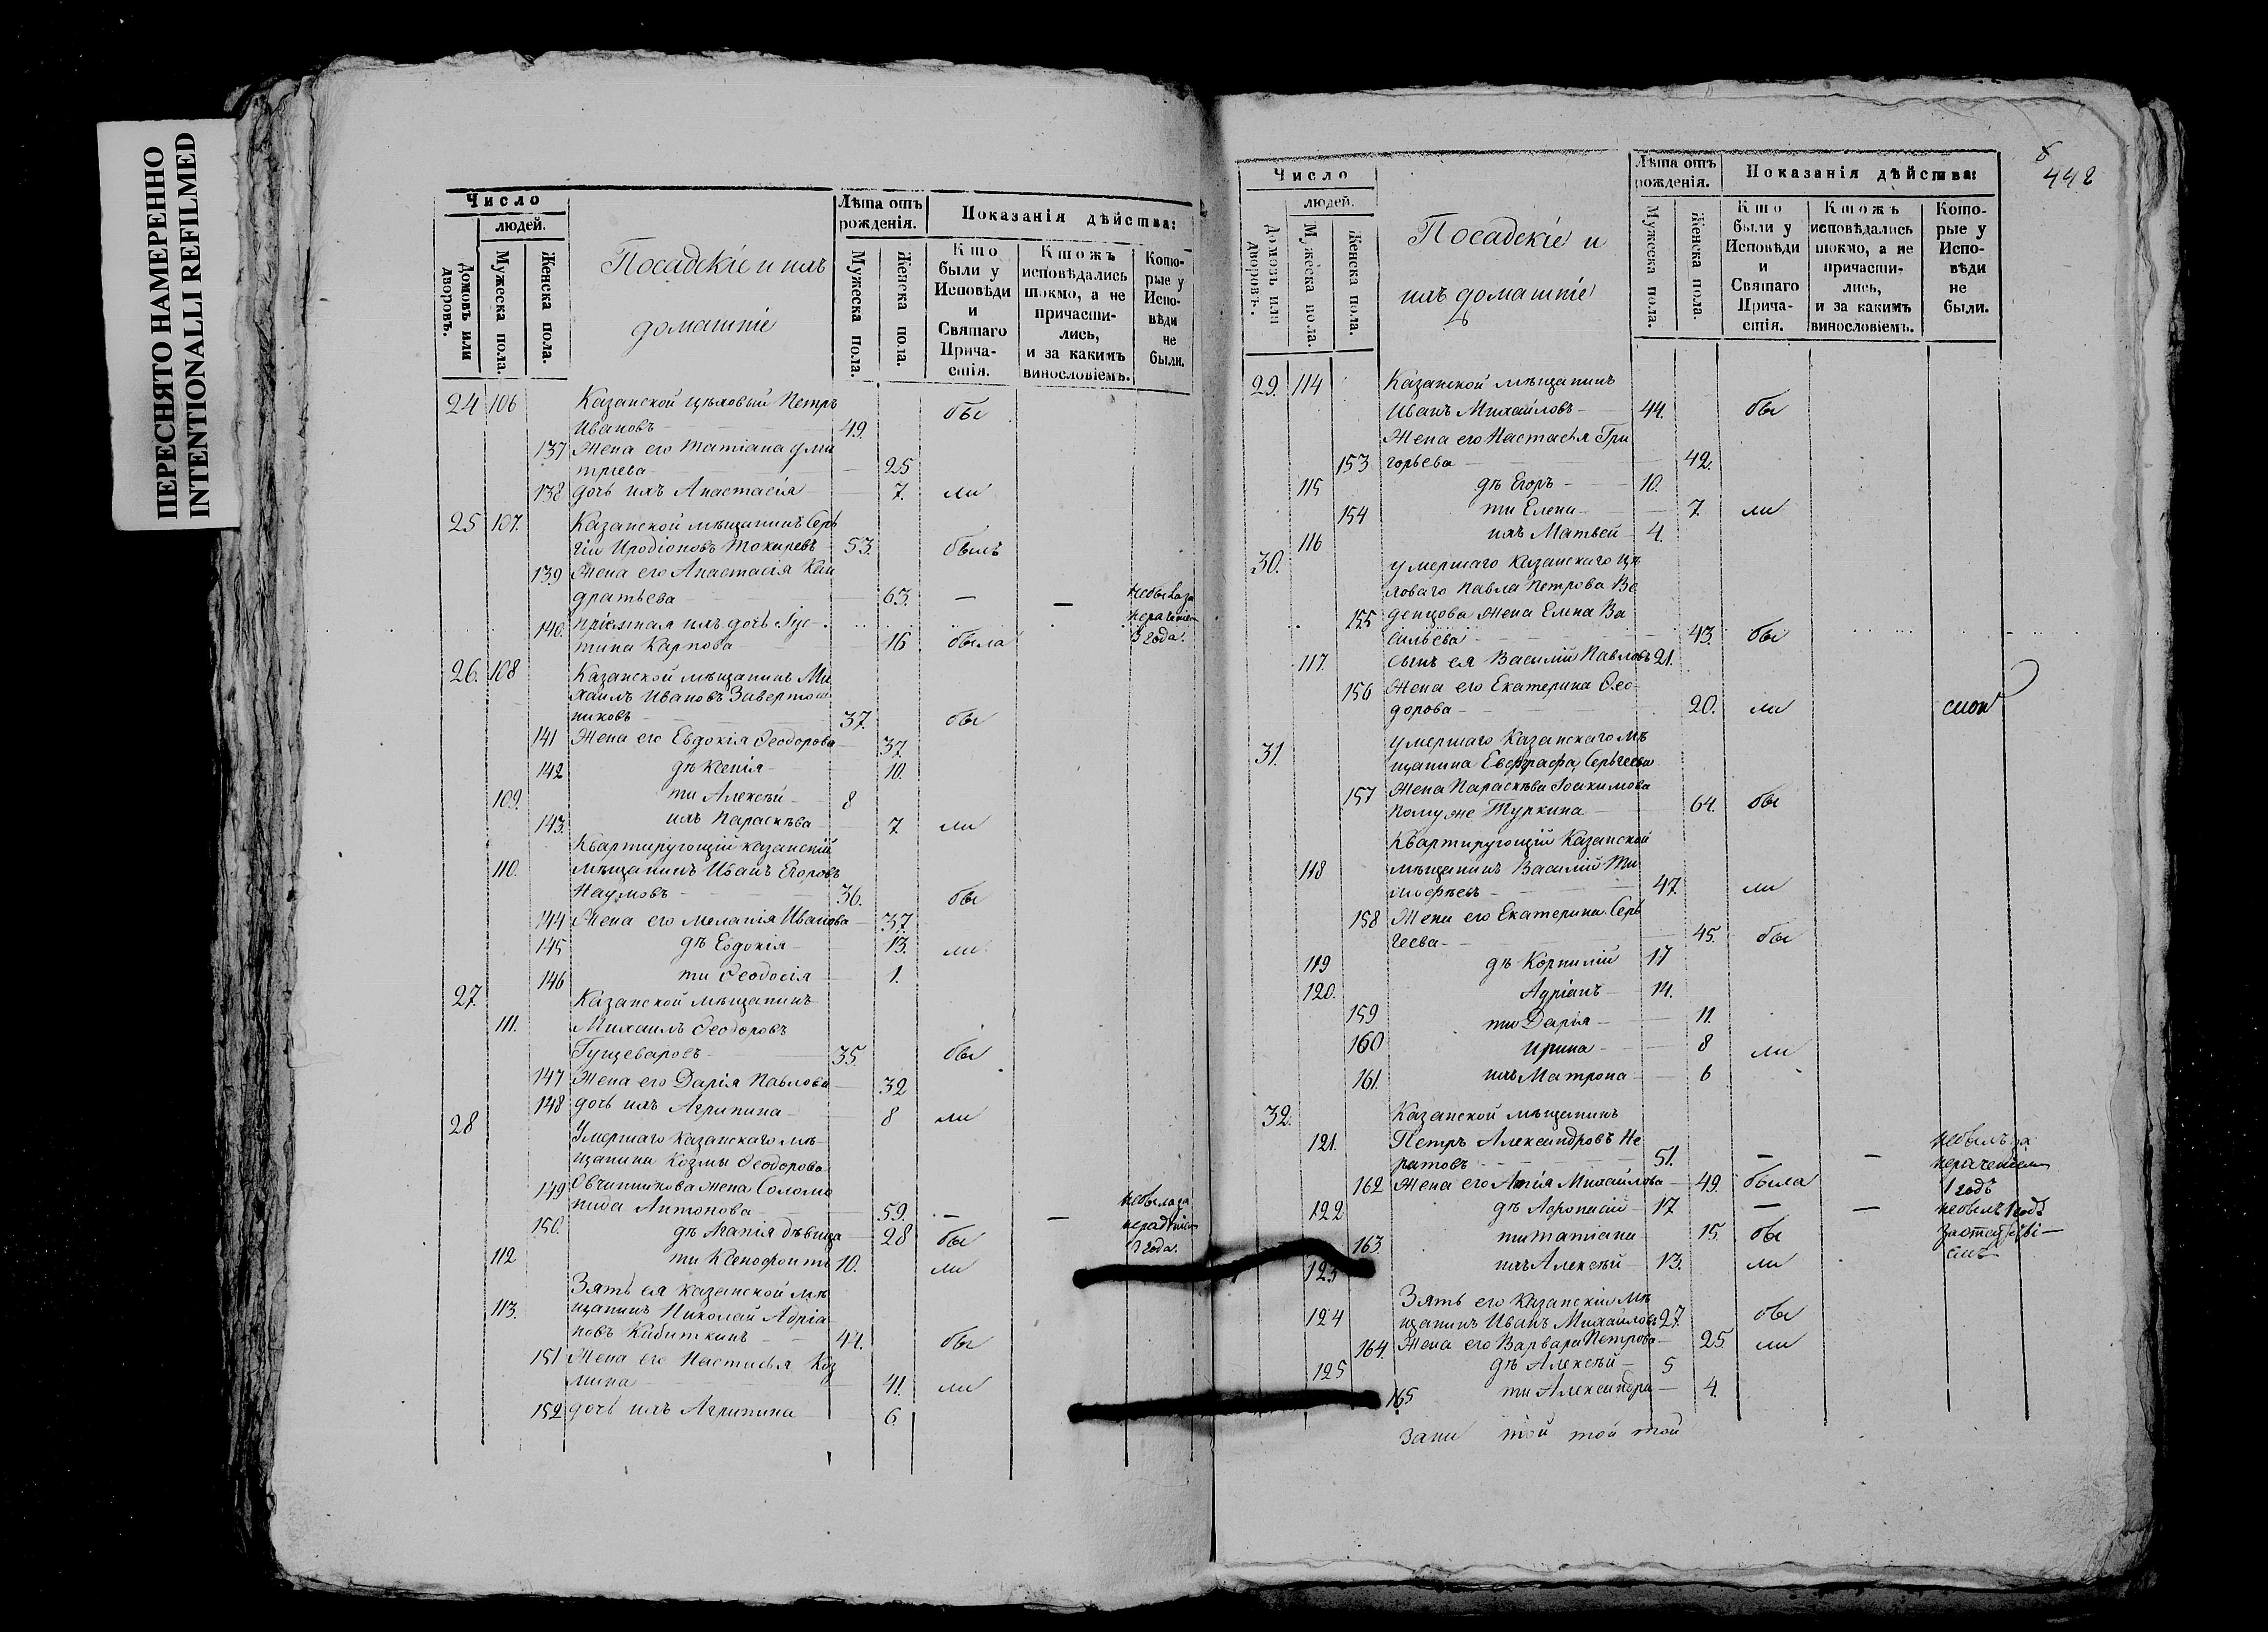 ПЕРЕСНЯТО НАМЕРЕННО
INTENTIONALLI REFILMED
Число
людей.
Домовъ или дворовъ.
Мужеска пола.
Женска пола.
Посадскіе и ихъ
домашніе
Лѣта отъ рожденія.
Мужеска пола.
Женска пола.
Показанія дѣйства:
Кто были у Исповѣди и Святаго Прича- стія.
Ктожъ исповѣдались токмо, а не причасти- лись, и за какимъ винословіемъ.
Кото- рые у Испо- вѣди не были.
24 106 Казанской цѣховый Петръ
Ивановъ 49. бы
137 Жена его Татіана Дми
тріева 25
138 дочь ихъ Анастасія 7. ли
25 107. Казанской мѣщанинъ Серь
гій Иродіоновъ Токаревъ 53. былъ
139 Жена его Анастасія Кон
дратьева 63. — — небыла за
нераченіем
140. пріемная ихъ дочь Іус
тина Карпова 16 была 3 года.
26. 108 Казанской мѣщанинъ Ми
хаилъ Ивановъ Заверточ
никовъ 37. бы
141 Жена его Евдокія Ѳеодорова 37.
142 дѣ Ксенія 10.
109. ти Алексѣй 8
143. ихъ Параскѣва 7 ли
Квартирующій казанскій
110. мѣщанинъ Иванъ Егоровъ
Наумовъ 36. бы
144 Жена его Меланія Иванова 37.
145 дѣ Евдокія 13. ли
146 ти Ѳеодосія 1.
27. Казанской мѣщанинъ
111. Михаилъ Ѳеодоровъ
Гущеваровъ 35. бы
147 Жена его Дарія Павлова 32
148 дочь ихъ Агрипина 8 ли
28 Умершаго Казанскаго мѣ
щанина Козмы Ѳеодорова
149 Овчинникова жена Солома
нида Антонова 59. — — небыла за
нерадѣніем
150. дѣ Агапія дѣвица 28 бы 3 года.
112 ти Ксенофонтъ 10. ли
Зять ея казанской мѣ
113. щанинъ Николай Адріа
новъ Кибиткинъ 44. бы
151 Жена его Настасья Коз
мина 41. ли
152 дочь ихъ Агрипина 6.
442
Число
людей.
Домовъ или дворовъ.
Мужеска пола.
Женска пола.
Посадскіе и
ихъ домашніе
Лѣта отъ рожденія.
Мужеска пола.
Женска пола.
Показанія дѣйства:
Кто были у Исповѣди и Святаго Прича- стія.
Ктожъ исповѣдались токмо, а не причасти- лись, и за какимъ винословіемъ.
Кото- рые у Испо- вѣди не были.
29. 114 Казанской мѣщанинъ
Иванъ Михайловъ 44. бы
Жена его Настасья Гри
153 горьева 42.
115 дѣ Егоръ 10.
154 ти Елена 7. ли
116 ихъ Матвей 4.
30. умершаго Казанскаго цѣ
ховаго Павла Петрова Ве
155 денцова Жена Елена Ва
сильева 43. бы
117. сынъ ея Василій Павловъ 21.
156 Жена его Екатерина Ѳео
дорова 20. ли
31. умершаго Казанскаго мѣ
щанина Евграфа Сергѣева
157 Жена Параскѣва Іоакимова
помуже Туркина 64. бы
Квартирующій Казанской
118 мѣщанинъ Василій Ти
моѳѣевъ 47. ли
158 Жена его Екатерина Серь
геева 45. бы
119 дѣ Корнилій 17
120. Адріанъ 14.
159 ти Дарія 11.
160 Ирина 8 ли
161. ихъ Матрона 6
32. Казанской мѣщанинъ
121. Петръ Александровъ Не
ратовъ 51. — — небылъ за
нераченіем
162 Жена его Анія Михайлова 49. была 1 годъ
122 дѣ Аѳонасій 17 — — небылъ 1 годъ
163 ти Татіана 15. бы
123 ихъ Алексѣй 13. ли
Зять его Казанскій мѣ
124 щанинъ Иванъ Михайловъ 27. бы
164. Жена его Варвара Петрова 25. ли
125 дѣ Алексѣй 5
165 ти Александра 4.
той той